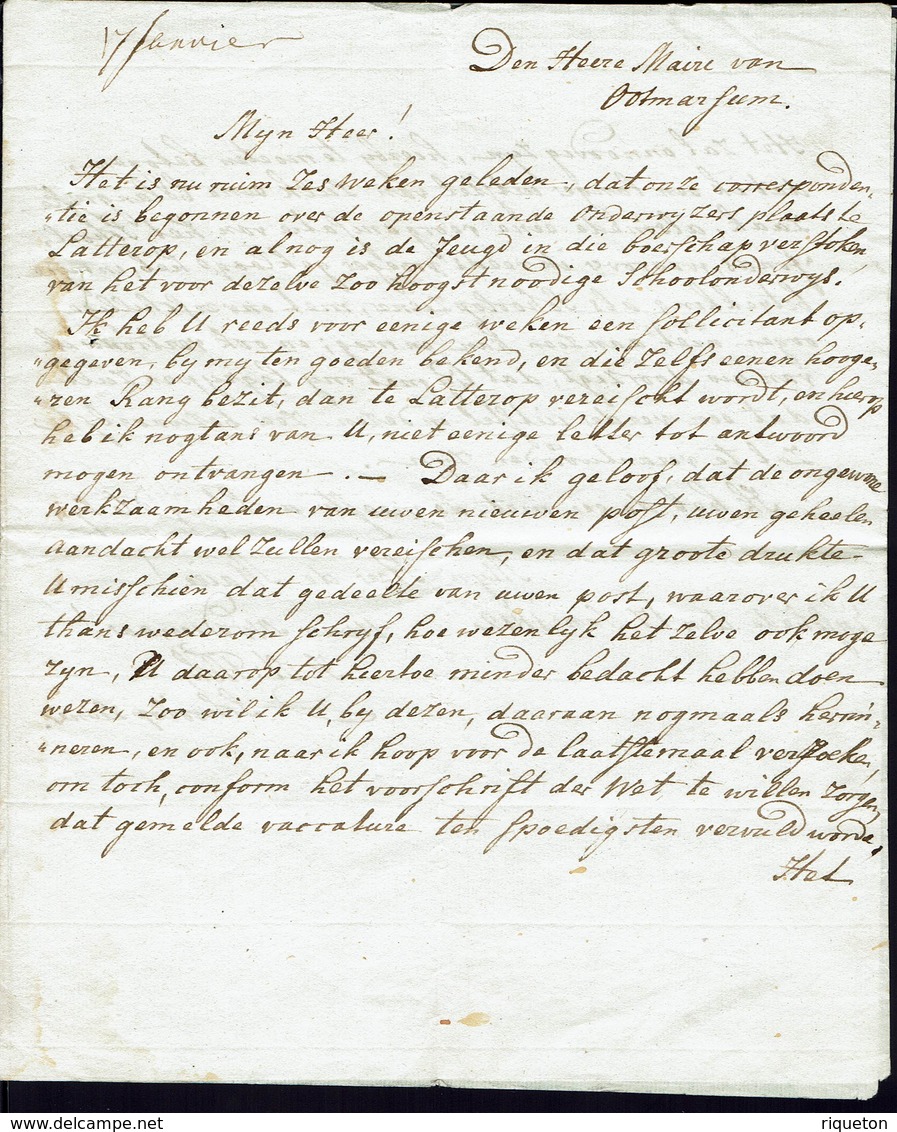 17 Janvier
Den Heere Maire van
Ootmarsum.
Mijn Heer!
Het is nu ruim zes weken geleden, dat onze corresponden-
"tie is begonnen over de openstaande Onderwyzers plaats te
Latterop, en alnog is de Jeugd in die boerschap verstoken,
van het voor dezelve zoo hoogst noodige Schoolonderwys.
Ik heb U reeds voor eenige weken een sollicitant op-
"gegeven, by my ten goeden bekend, en die zelfs eenen hooge-
"ren Rang bezit, dan te Latterop vereischt wordt, en hierop
heb ik nogtans van U, niet eenige letter tot antwoord
mogen ontvangen. — Daar ik geloof, dat de ongewone
werkzaamheden van uwen nieuwen post, uwen geheelen
aandacht wel zullen vereischen, en dat groote drukte
U misschien dat gedeelte van uwen post, waarover ik U
thans wederom schryf, hoe wezenlyk het zelve ook moge
zyn, U daarop tot hiertoe minder bedacht hebben doen
wezen, zoo wil ik U, by dezen, daaraan nogmaals herin-
"neren, en ook, naar ik hoop voor de laatstemaal verzoeken,
om toch, conform het voorschrift der Wet te willen zorgen,
dat gemelde vaccature ten spoedigsten vervuld worde.
Het
riqueton